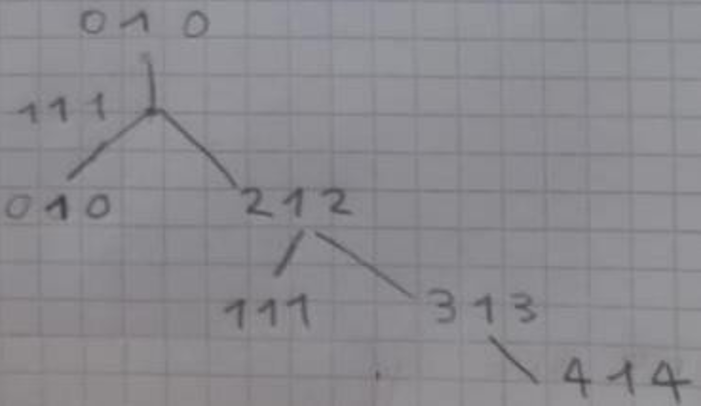 010
111
010 212
111 313
414